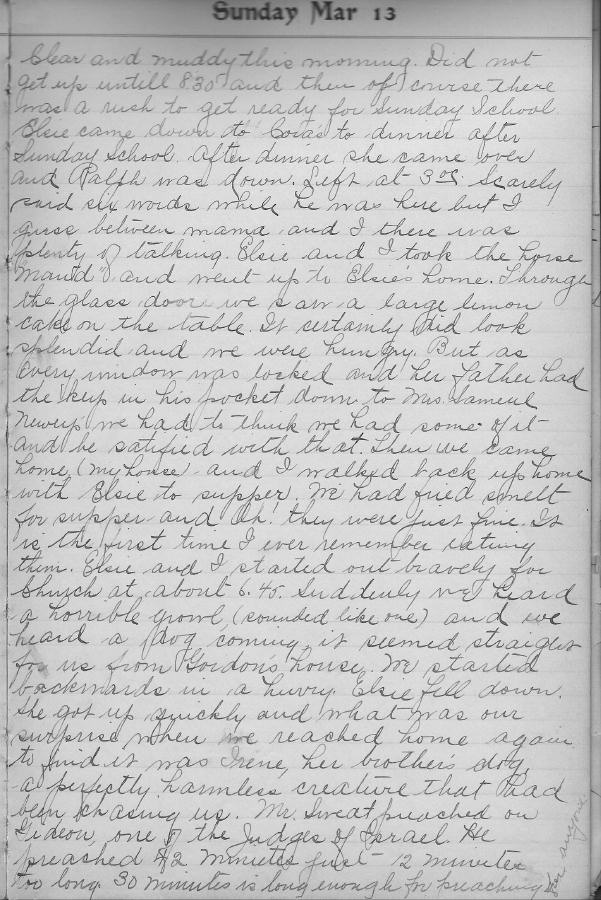 Sunday Mar 13
Clear and muddy this morning. Did not
get up untill 830 and then of course there
was a rush to get ready for Sunday School.
Elsie came down to Coras to dinner after
Sunday School. After dinner she came over
and Ralph was down. Left at 3 05. Scarely
said six words while he was here but I
guess between mama and I there was
plenty of talking. Elsie and I took the horse
"Maud" and went up to Elsie's home. Through
the glass doore we saw a large lemon
cake on the table. It certainly did look
splendid and we were hungry. But as
every window was locked and her father had
the key in his pocket down to Mrs.
we had to think we had some of it
and be satified with that. Then we came
home, (my house) and I walked back up home
with Elsie to supper. We had fried smelt
for supper and Oh! they were just fine. It
is the first time I ever remember eating
them. Elsie and I started out bravely for
Church at about 6.45. Suddenly we heard
a horrible growl, (sounded like one) and we
heard a dog coming, it seemed straight
for us from Gordon's house. We started
backwards in a hurry. Elsie fell down.
She got up quickly and what was our
surprise when we reached home again
to find it was Irene, her brother's dog,
a perfectly harmless creature that had
been chasing us. Mr. Sweat preached on
Gideon, one of the Judges of Israel. He
preached 42 minutes just 12 minutes
too long. 30 minutes is long enough for preaching
for anyone